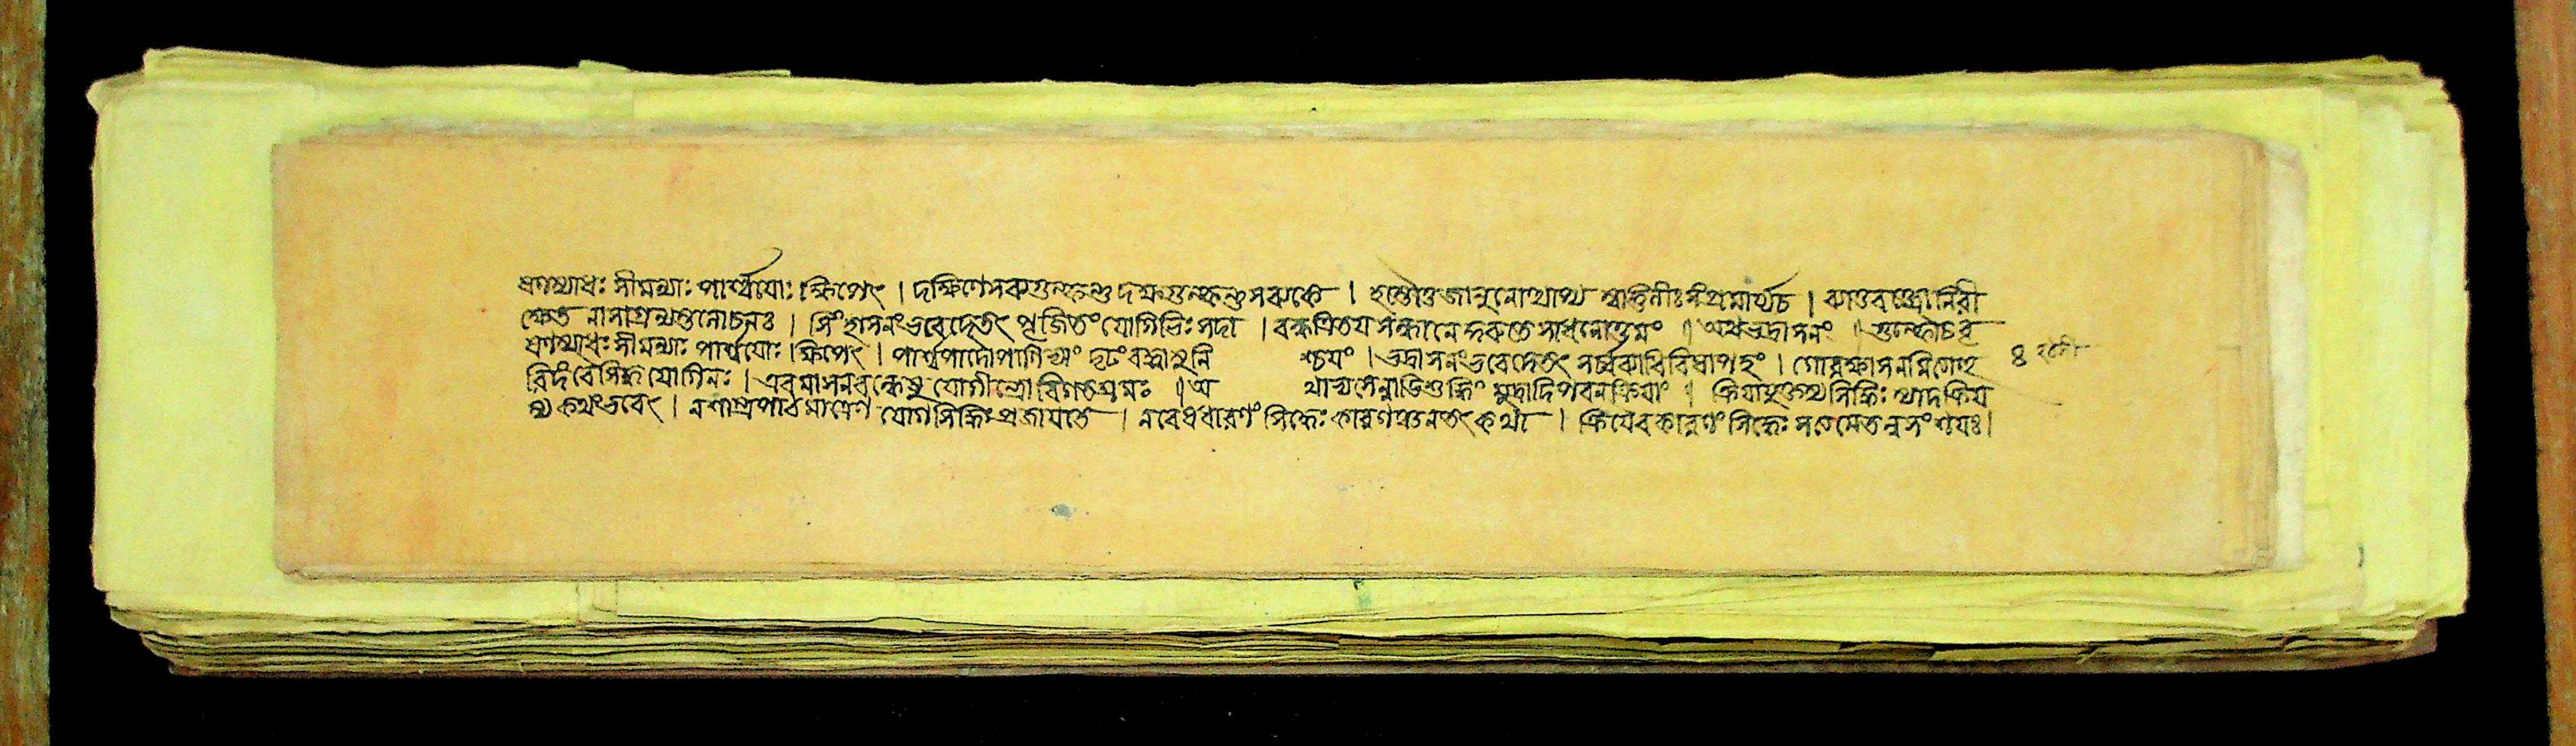 ষণস্যাধঃ সীমন্যাঃ পার্শ্বযোঃ ক্ষিপেৎ । দক্ষিণেসব্যগুল্ফন্তু দক্ষগুল্ফন্তু সব্যকে । হস্তৌতুজান্বনোস্থাপ্য স্বাঙ্গুলীঃসংপ্রসার্য্যচ । ব্যাত্তবক্ত্রোনিরী
ক্ষেত নাসাগ্রন্যস্তলোচনঃ । সিংহাসনংভবেদেতৎ পূজিতংযোগিভিঃসদা । বন্ধত্রিতয়সংস্থানে সরুতে সাধনোত্তমং ॥ অথভদ্রাসনং ॥ গুল্ফৌচবৃ
ষণস্যাধঃ সীমন্যাঃ পার্শ্বযোঃ ক্ষিপেৎ । পার্শ্বপাদৌপাণিভ্যাং দৃঢংবদ্ধাসুনি শ্চয়ং । ভদ্রাসনংভবেদেতৎ সর্ব্বব্যাধিবিষাপহং । গোরক্ষাসনমিত্যাহু ৪
রিদংবৈসিদ্ধযোগিনঃ । এবমাসনবন্ধেষু যোগীন্দ্রোবিগতশ্রমঃ ॥ অ থাভ্যসেন্নাডিশুদ্ধিং মুদ্রাদিপবনক্রিয়াং । ক্রিয়াযুক্তস্যসিদ্ধিঃ স্যাদক্রিয়
স্য কথংভবেৎ । নশাস্ত্রপাঠমাত্রেণ যোগসিদ্ধিঃপ্রজায়তে । নবেধধারণং সিদ্ধেঃ কারণংনচতৎকথা । ক্রিয়ৈবকারণং সিদ্ধেঃ সত্যমেতন্নসংশয়ঃ।